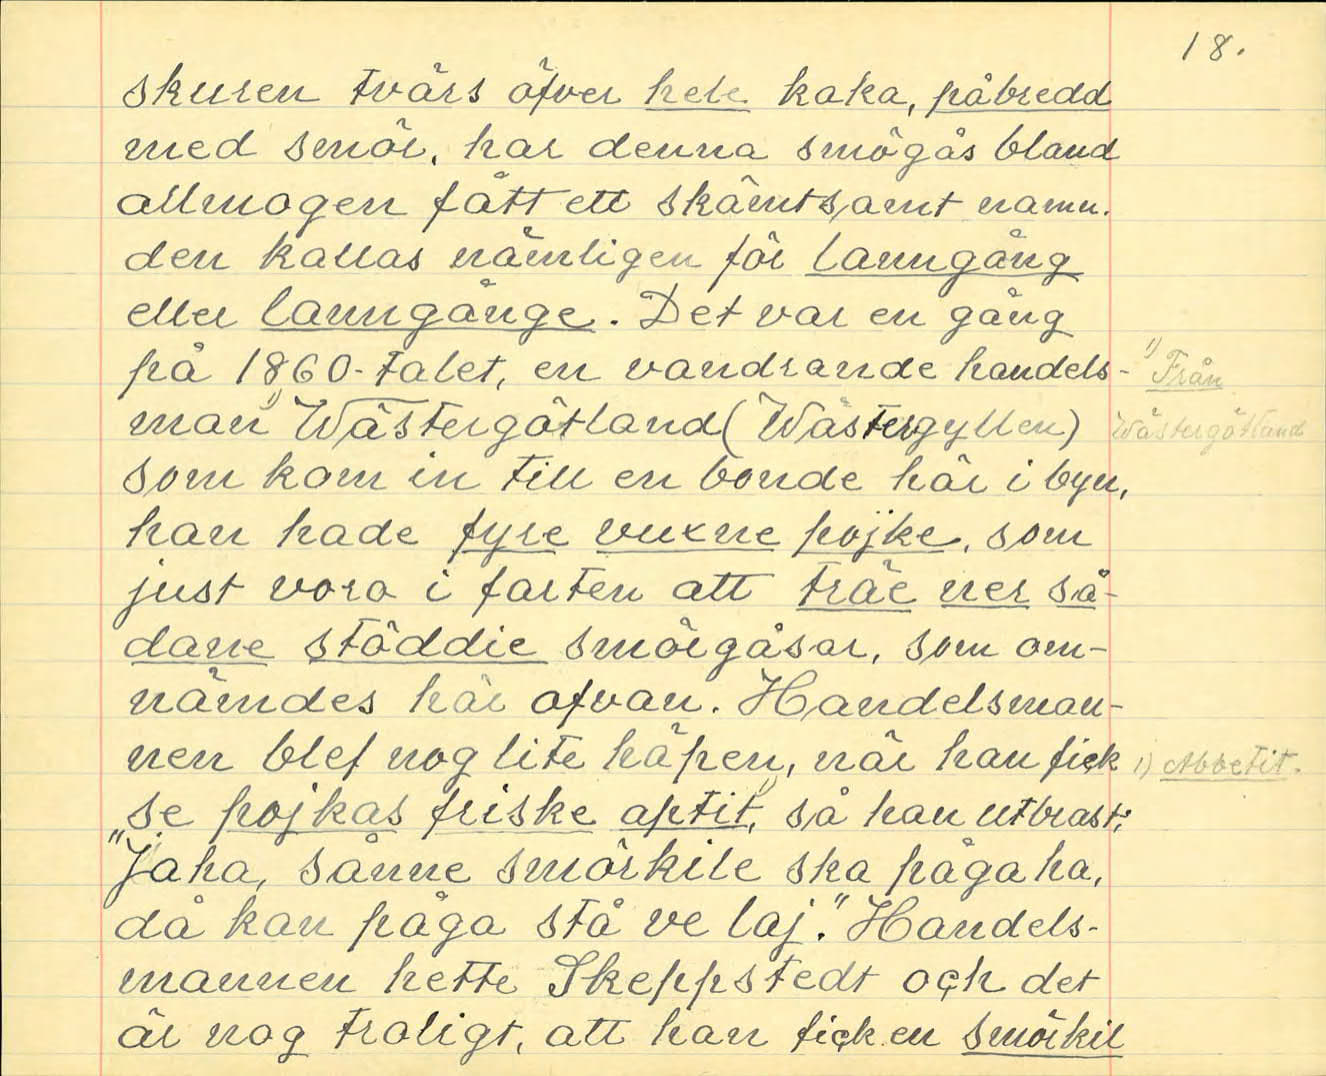 18.
skuren tvärs öfver hele kaka, påbredd
med smör, har denna smögås bland
allmogen fått ett skämtsamt namn.
den kallas nämligen för lanngång
eller lanngånge. Det var en gång
på 1860-talet, en vandrande handels-
man 1) Wästergötland (Wästergyllen)
1) Från
Wästergötland
som kom in till en bonde här i byn,
han hade fyre vuxne pojke, som
just voro i farten att träe ner så-
dane stöddie smörgåsar, som om-
nämdes här ofvan. Handelsman-
nen blef nog lite häpen, när han fick
1) Abbetit.
se pojkas friske aptit 1), så han utbrast:
"Jaha, sånne smörkile ska påga ha,
då kan påga stå ve laj." Handels-
mannen hette Skeppstedt och det
är nog troligt, att han fick en smörkil